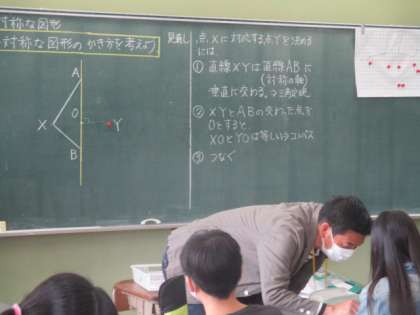 対称な図形
対称な図形のかき方を考えよう
A
O
X
Y
B
見通し
点Xに対応する点Yを決める
には、
① 直線XYは直線ABに
(対称の軸)
垂直に交わる。→三角定規
② XYとABの交わった点を
Oとすると、
XOとYOは等しい→コンパス
③ つなぐ